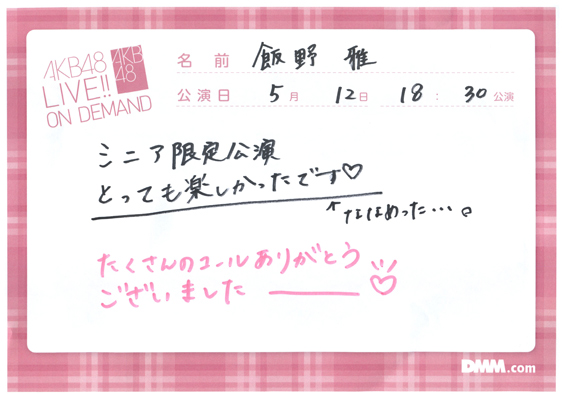 AKB48
LIVE!!
ON DEMAND
AKB
48
名前 飯野 雅
公演日 5月 12日 18:30公演
シニア限定公演
とっても楽しかったです♡
↑ななめった…。
たくさんのコールありがとう
ございました ――♡
DMM.com